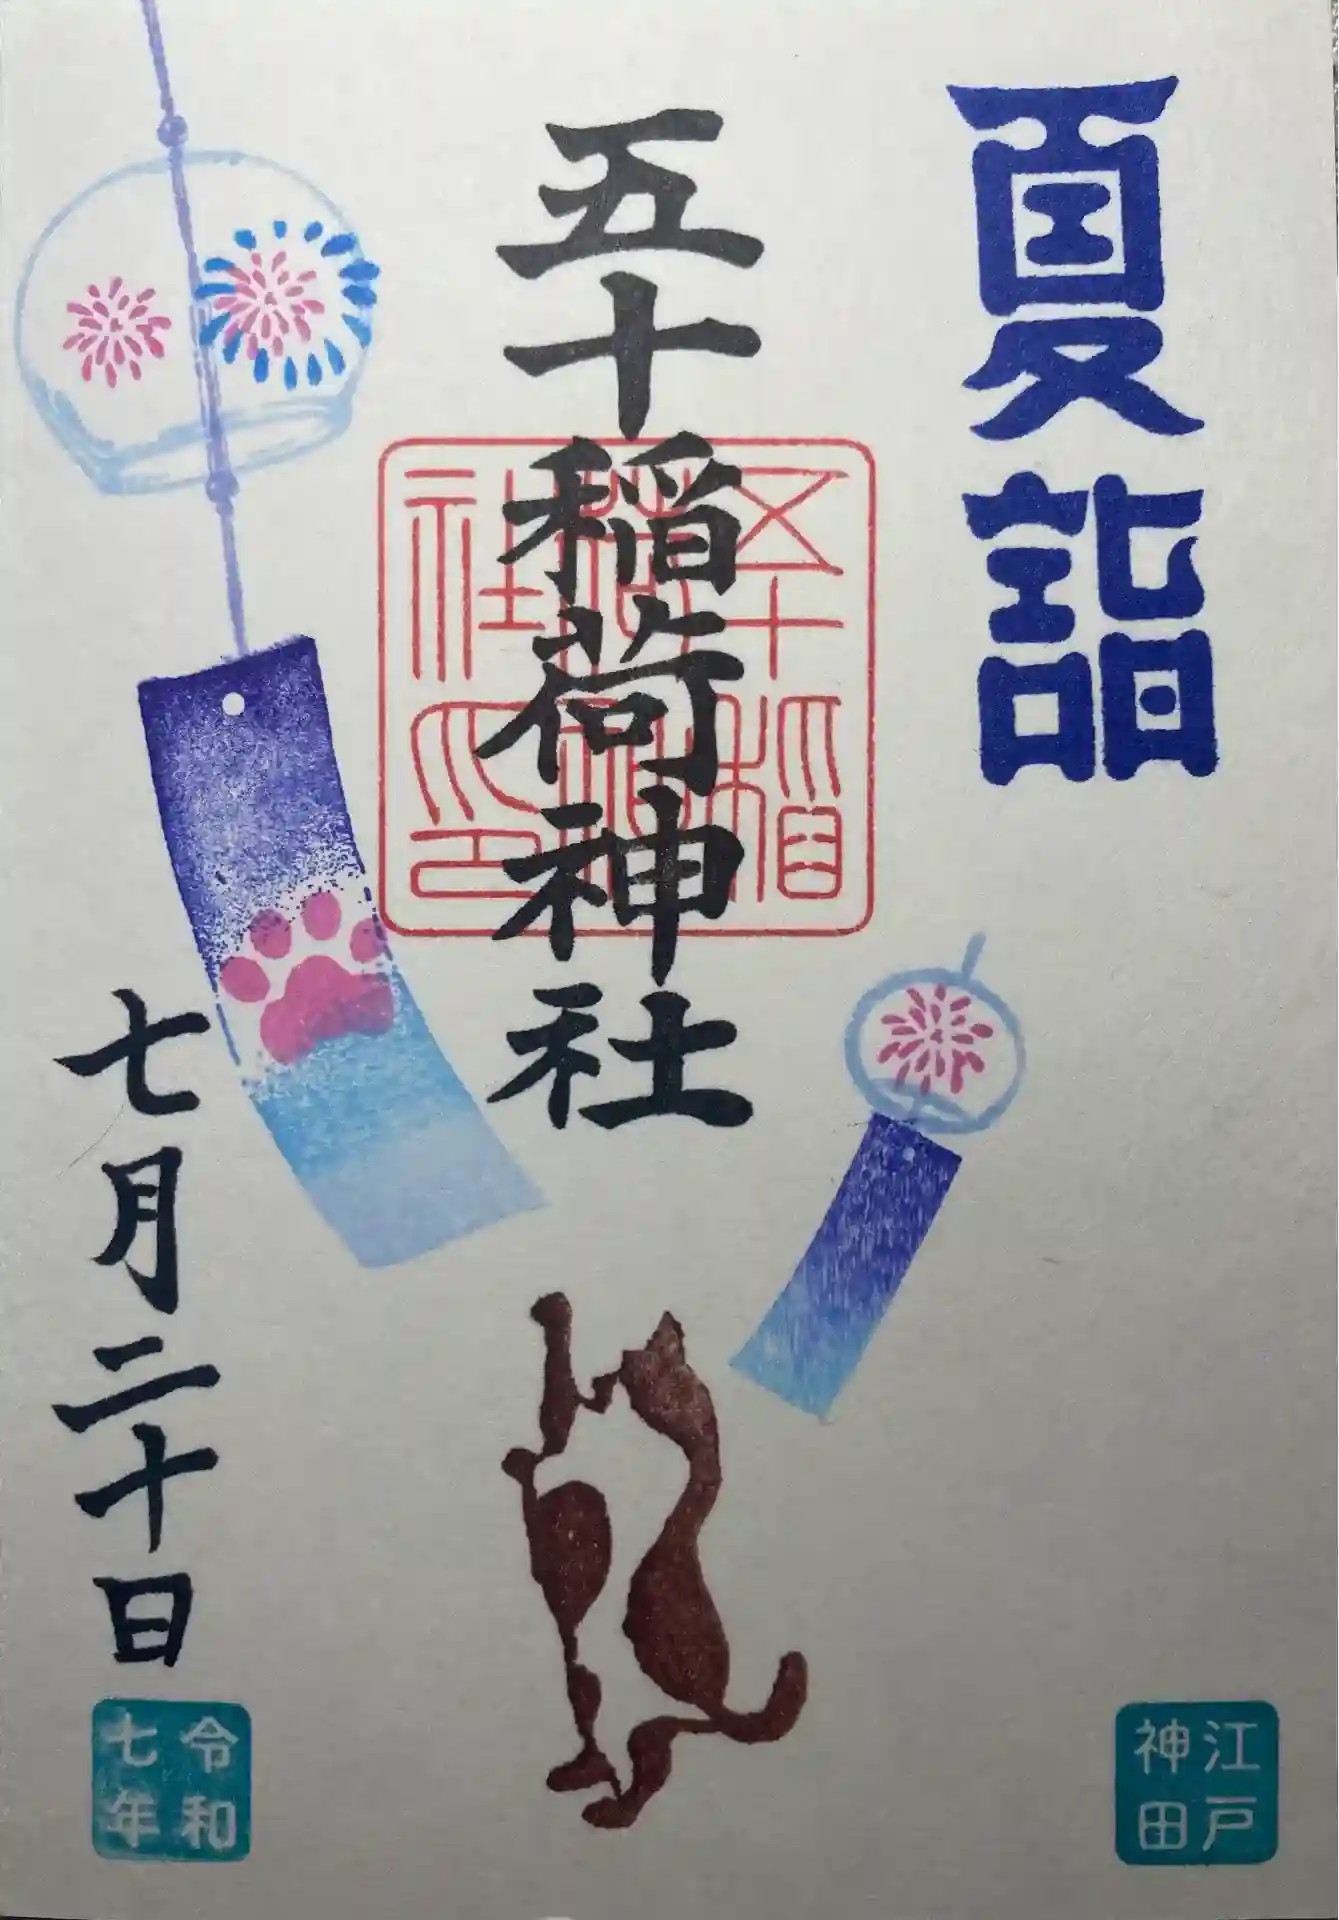 夏詣
五十稲荷神社
五十稲荷神社印
七月二十日
令和七年
江戸神田